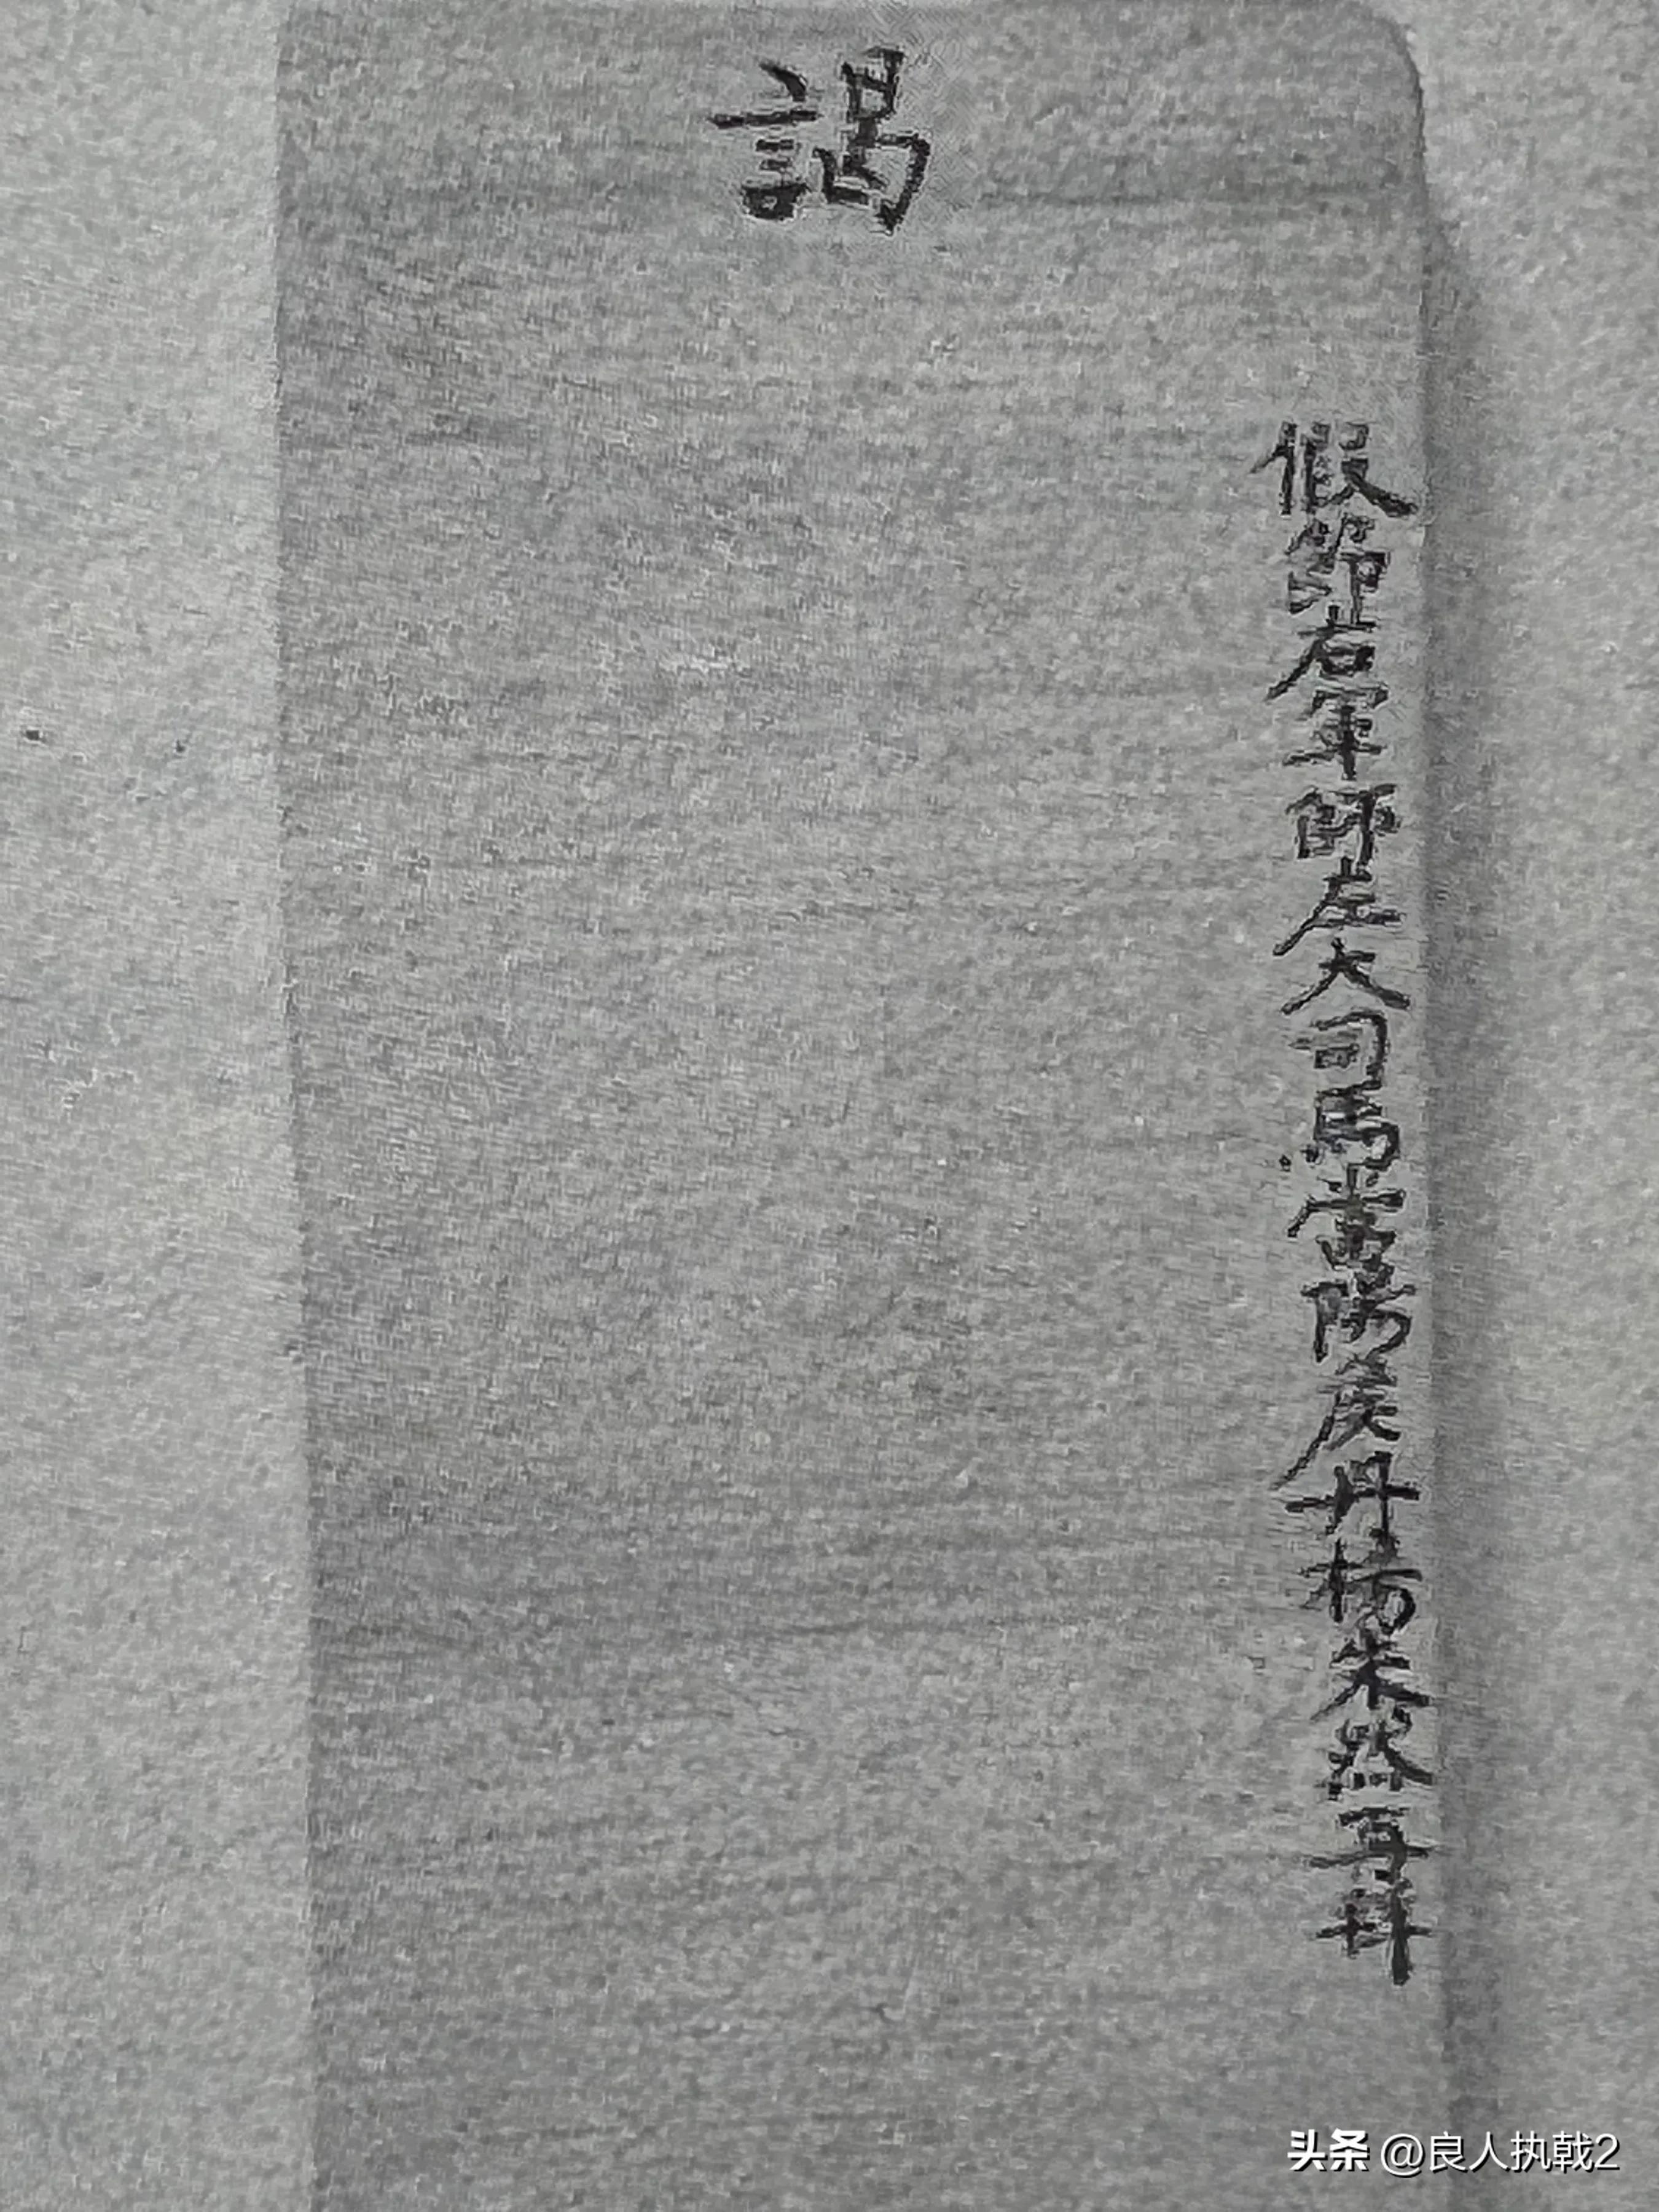 謁
假節右軍師左大司馬當陽侯丹楊朱然再拜
头条 @良人执戟2